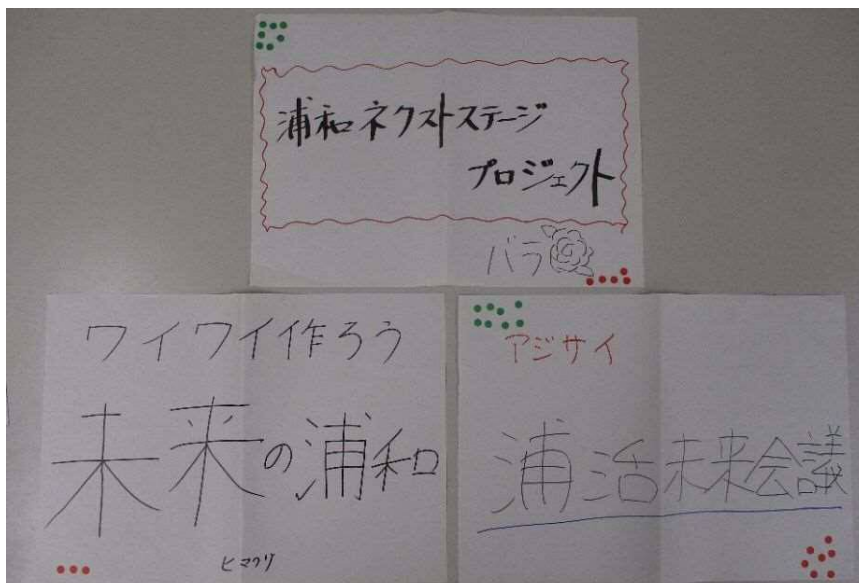 浦和ネクストステージ
プロジェクト
バラ
ワイワイ作ろう
未来の浦和
ヒマワリ
アジサイ
浦活未来会議